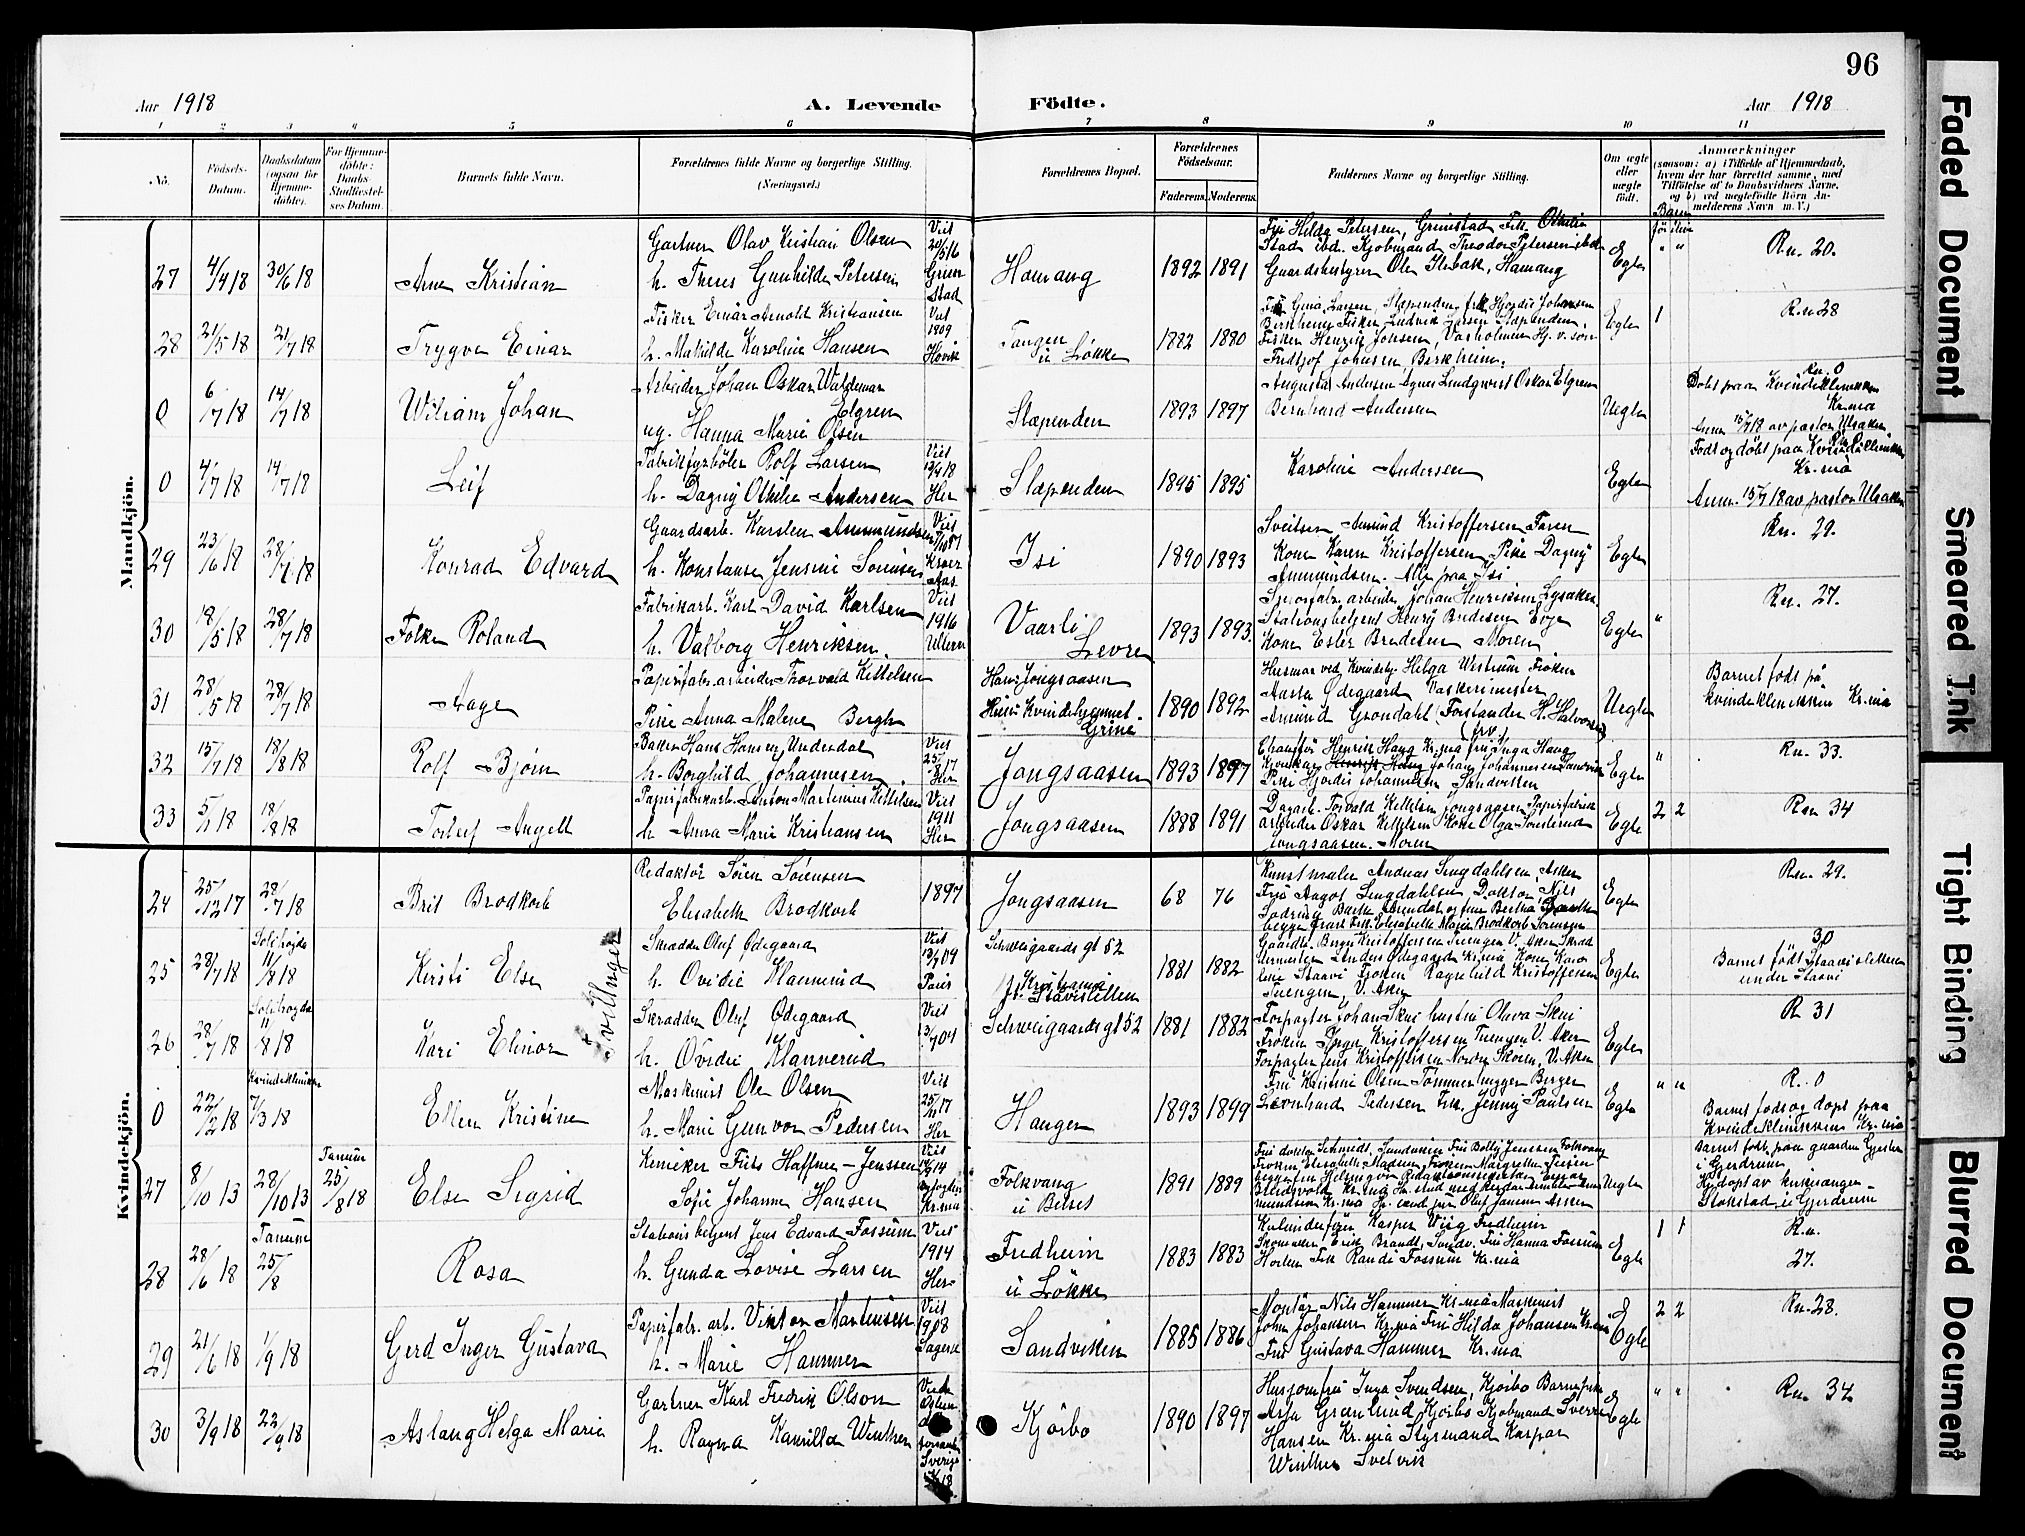 96
Aar 1918
A. Levende
Födte.
Aar 1918
1 2 3 4 5 6 7 8 9 10 11
No.
Födsels-
Datum.
Daabsdatum
(ogsaa for
Hjemme-
döbte).
For Hjemme-
döbte:
Daabs-
Stadfæstel-
ses Datum.
Barnets fulde Navn.
Forældrenes fulde Navne og borgerlige Stilling.
(Næringsvei.)
Forældrenes Bopæl.
Forældrenes
Födselsaar.
Faderens. Moderens.
Faddernes Navne og borgerlige Stilling.
Om ægte
eller
uægte
födt.
Anmærkninger
(saasom: a) i Tilfælde af Hjemmedaab,
hvem der har forrettet samme, med
Tilföielse af to Daabsvidners Navne,
og b) ved uægtefödte Börn An-
melderens Navn m. V.)
Mandkjön.
27 4/4 18 30/6 18 Arne Kristian
Gartner Olav Kristian Olsen
h. Thres Gunhilda Petersen
Viet
20/5 16
Grim
stad
Hamang 1892 1891
Fru Hilda Petersen, Grimstad Frk. Othilie
Stad ibd. Kjöbmand Theodor Petersen ibd.
Gaardsbestyrer Ole Ilebak, Hamang
Egte " " Rn. 20.
28 21/5 18 21/7 18 Trygve Einar
Fisker Einar Arnold Kristiansen
h. Mathilde Karoline Hansen
Viet
1909
Hövik
Tangen
u Lökke
1882 1880
Fru Gina Larsen, Slæpenden, frk Hjördis Johansen
Berkheim Fisker Ludvik Larsen Slæpenden,
Fisker Henrik Jonsen, Varholmen Hj. v. sön
Fridtjof Johnsen Berkheim.
Egte 1 Rn 28
0 6/7 18 14/7 18 William Johan
Arbeider Johan Oskar Waldemar
Elgren
ug. Hanna Marie Olsen
Slæpenden 1893 1897
Augusta Andersen Agnes Lindqwist Oskar Elgren
Bernhard Andersen
Uegte
Rn. 0
Döbt paa Kvindeklinikken
Kr.ma
Anm 15/7 18 av pastor Ulsaker
0 4/7 18 14/7 18 Leif
Fabrikfyrböter Rolf Larsen
h. Dagny Othilie Andersen
Viet
13/4 18
Her
Slæpenden 1895 1895
Karoline Andersen
Egte
Födt og döbt paa Kvindeklinikken
Kr.ma
Anm. 15/7 18 av pastor Ulsaker
29 23/6 18 28/7 18 Konrad Edvard
Gaardsarb. Karsten Ammundsen
h. Konstanse Jensine Sörensen
Viet
Kroer
Aas.
Isi 1890 1893
Sveitser Amund Kristoffersen Faren
Kone Karen Kristoffersen Pike Dagny
Ammundsen. Alle paa Isi
Egte Rn. 29.
30 18/5 18 28/7 18 Folke Roland
Fabrikarb. Karl David Karlsen
h. Valborg Henriksen.
Viet
1916
Ullern
Vaarli
Levre
1893 1893.
arbeider Johan Henriksen Lysaker.
Stationsbetjent Henry Bredesen Evje
Kone Ester Bredesen Moren
Egte " Rn. 27.
31 28/5 18 28/7 18 Aage
Papirfabr.arbeider Thorvald Kittelsen
Pike Anna Malene Bergh
Hans Jongsaasen
Hun: Kvindehjemmet
Grini
1890 1892
Husmor ved Kvindehj. Helga Vestrum Fröken
Aasta Ödegaard Vaskerimester
Amund Gröndahl (Forstander H. Halvorsen)
Uegte
Barnet födt på
kvindeklinikken Kr.ma
32 15/7 18 18/8 18 Rolf Björn
Baker Hans Hansen Underdal
h. Borghild Johannesen.
Viet
25/ 17
Her
Jongsaasen 1893 1897
Chaufför Henrik Haug Kr.ma fru Inga Haug
Johan Johannesen Sandviken
Pike Hjördis Johannesen Sandviken
Egte " Rn. 33.
33 5/7 18 18/8 18 Torleif Angell
Papirfabrikarb. Anton Martinius Kittelsen
h. Anna Marie Kristiansen
Viet
1911
Her
Jongsaasen 1888 1891
Dagarb. Torvald Kittelsen Jongsaasen Papirfabrik
arbeider Oskar Kittelsen Kone Olga Sönsterud
Jongsaasen. Moren
Egte 2 2 Rn 34
Kvindekjön.
24 25/12 17 28/7 18 Brit Brodkorb
Redaktör Sören Sörensen
Elisabeth Brodkorb
1897
Jongsaasen 68 76
Kunstmaler Andreas Singdahlsen, Asker
Fru Aagot Singdahlsen Doktor Nils
begge Frk. Elisabeth Marie Brodkorb Sörensen
Egte Rn. 29.
25 28/7 18 Solihögda 11/8 18 Kirsti Else
Tvillinger
Skrædder Oluf Ödegaard
h. Ovidie Hannerud
Viet
13/7 04
Paris
Schweigaards gt 52
Kristiania
f. Staviseteren
1881 1882
Gaardbr. Birger Kristoffersen Tuengen V. Aker Skræd
dermester Anders Ödegaard Kr.ma Kone Karo
line Staavi Fröken Ragnhild Kristoffersen
Tuengen, V. Aker
Egte
30
Barnet födt Staavisletten
under Staavi
26 28/7 18 Solihögda 11/8 18 Kari Elinor
Skrædder Oluf Ödegaard
h. Ovidie Hannerud
Viet
13/7 04
Schweigaards gt 52 1881 1882
Forpagter Johan Skui hustru Olava Skui
Fröken Inga Kristoffersen Tuengen V. Aker
Forpagter Jens Kristoffersen Nordre Skoien, V. Aker
Egte R 31
0 22/2 18 Kvindeklinikken 7/3 18 Ellen Kristine
Maskinist Ole Olsen
h. Marie Gunvor Pedersen
Viet
25/11 17
Her
Hangen 1893 1899
Fru Kristine Olsen Tömmerhugger Birger
Leonhard Pedersen Frk. Jenny Paulsen
Egte " " R. 0
Barnet föds og döpt paa
Kvindeklinikken Kr.ma
27 8/10 13 28/10 13 Tanum 25/8 18 Else Sigrid
Kemiker Friis Haffner-Jenssen
Sofie Johanne Hansen
Viet
14
Kr.ma
Folkvang
u Belset
1891 1889
Fru doktor Schmidt, Sandviken Fru Bolly Jenssen Folkvang
Fröken Elisabeth Madsen, Fröken Margrethe Friisen
Uegte
Barnet födt paa gaarden Gjester
i Gjerdrum
Hj.döpt av kirkesanger
Stokstad, i Gjerdrum
28 28/6 18 Tanum 25/8 Rosa
Stationsbetjent Jens Edvard Fossum
h. Gunda Lovise Larsen
Viet
1914
Her
Fredheim
u Lökke
1883 1883
Kasper Wiig Fredheim
Skomaker Erik Brandt, Sandv. Fru Hanna Fossum
Horten Frk Randi Fossum Kr.ma
Egte 1 1 Rn.
27.
29 21/6 18 1/9 18 Gerd Inger Gustava
Papirfabr. arb. Viktor Martinsen
h. Marie Hammer
Viet
1908
Fagerst
Sandviken 1885 1886
Montör Nils Hammer Kr.ma Maskinist
John Johansen Kr.ma Fru Hilda Johansen Kr.ma
Fru Gustava Hammer Kr.ma
Egte 2 2 Rn. 28.
30 3/9 18 22/9 18 Aslaug Helga Marie
Gartner Karl Fredrik Olson
h. Ragna Kamilla Winther
Sverige
Kjörbo 1890 1897
Husjomfru Inga Svendsen, Kjörbo Barnepike
Asja Grönlund Kjörbo Kjöbmand Sverre
Hansen Kr.ma Styrmand Kaspar
Winther Svelvik
Egte " " Rn. 32
Faded Document
Smeared Ink
Tight Binding
Blurred Document